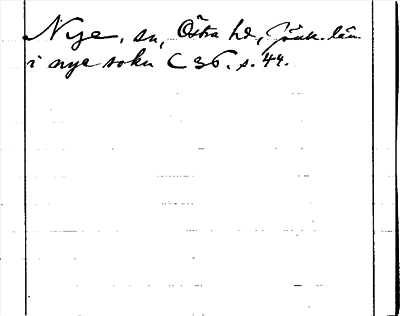 Nye, sn, Östra hd, Jönk. län
i nye sokn C 36. s. 44.